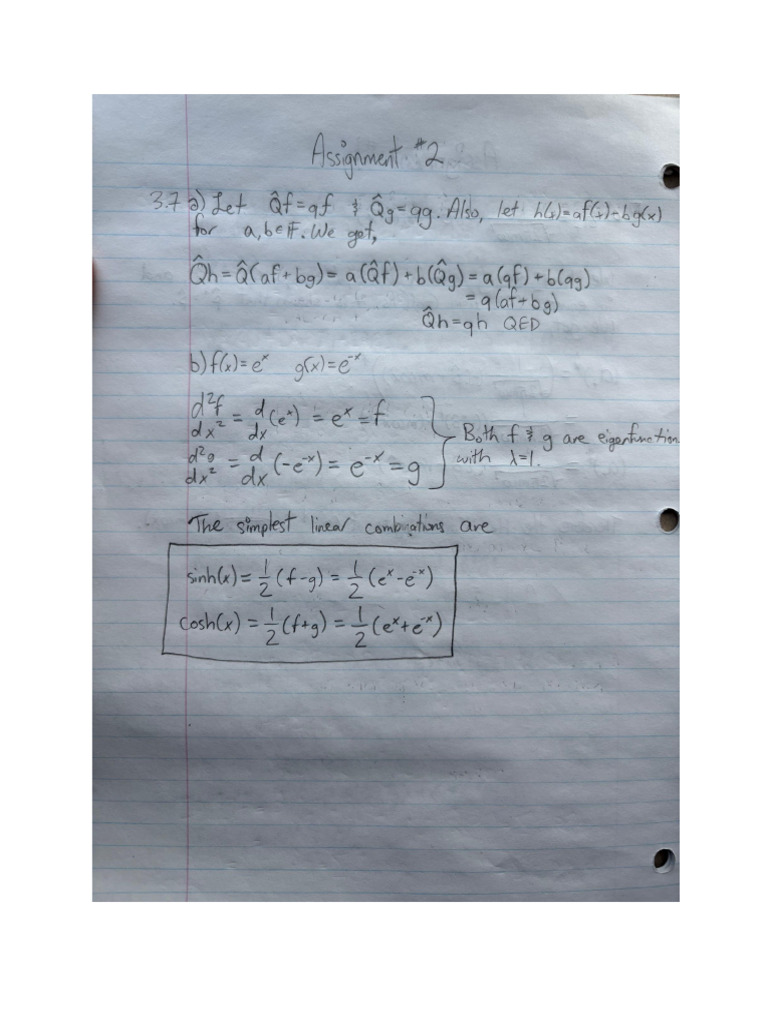 Assignment #2
3.7 a) Let Q̂f=qf & Q̂g=qg. Also, let h(x)=af(x)+bg(x)
for a,b∈F. We get,
Q̂h=Q̂(af+bg)=a(Q̂f)+b(Q̂g)=a(qf)+b(qg)
=q(af+bg)
Q̂h=qh QED
b) f(x)=eˣ g(x)=e⁻ˣ
d²f/dx² = d/dx (eˣ) = eˣ = f
d²g/dx² = d/dx (-e⁻ˣ) = e⁻ˣ = g
Both f & g are eigenfunction
with λ=1.
The simplest linear combinations are
sinh(x) = 1/2 (f-g) = 1/2 (eˣ-e⁻ˣ)
cosh(x) = 1/2 (f+g) = 1/2 (eˣ+e⁻ˣ)